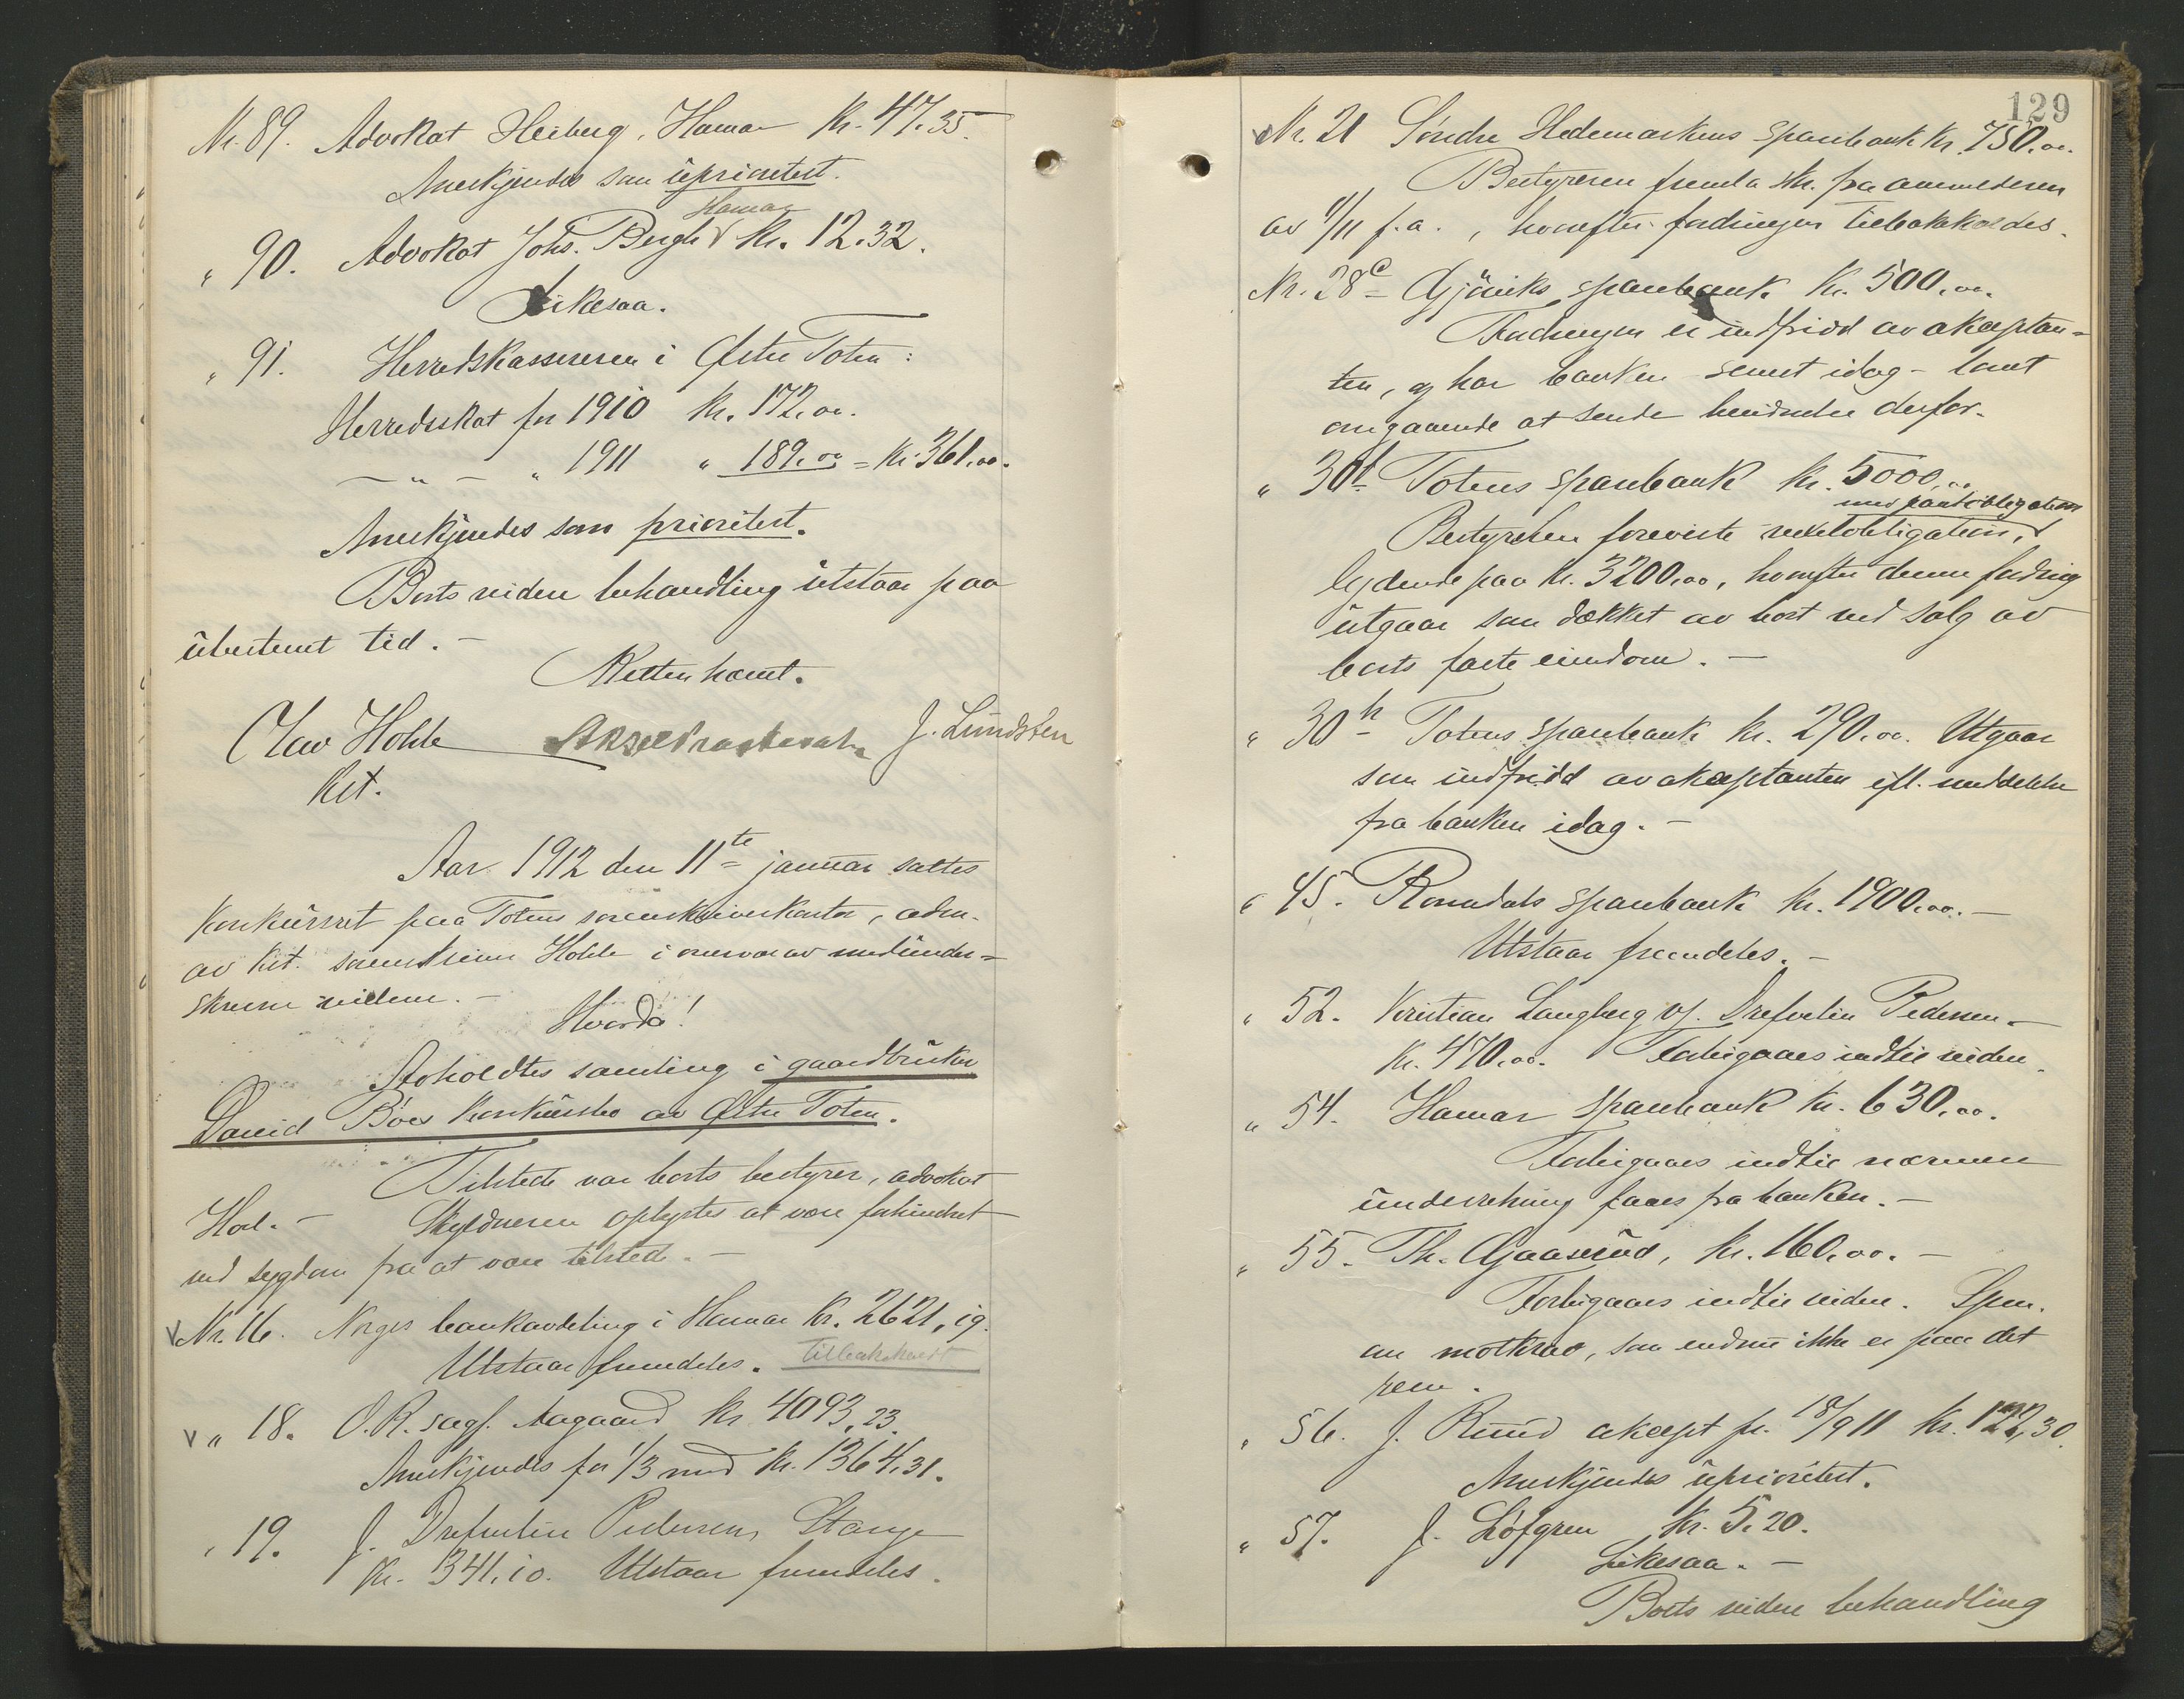 Nr. 89. Advokat Heiberg, Hamar Kr. 47.35.
Anerkjendes som uprioritert.
Hamar
" 90. Advokat Johs. Bergh Kr. 12.32.
Likesaa.
" 91. Herredskassereren i Østre Toten:
Herredsskat for 1910 Kr. 172.00.
— " — " 1911 " 189.00 = Kr. 361.00.
Anerkjendes som prioritert.
Boets videre behandling utstaar paa
ubestemt tid. —
Retten hævet.
Olav Hohle J. Lundsten
kst.
Aar 1912 den 11te januar sattes
konkursret paa Totens sorenskriverkontor, adm.
av kst. sorenskriver Hohle i overvær av medunder=
skrevne vidner. —
Hvorda!
Avholdtes samling i gaardbruker
David Böes konkursbo av Østre Toten.
Tilstede var boets bestyrer, advokat
Hoel. — Skyldneren oplystes at være forhindret
ved sygdom fra at være tilstede. —
V Nr. 16. Norges bankavdeling i Hamar Kr. 2621,19.
Utstaar fremdeles. tilbakekaldt
V " 18. O.R. sagf. Aagaard Kr. 4093,23.
Anerkjendes for 1/3 med Kr. 1364,31.
" 19. J. Drefvelin Pedersen, Stange
Kr. 341.10. Utstaar fremdeles.
129
V Nr. 21 Søndre Hedemarkens sparebank Kr. 750,00.
Bestyreren fremla skr. fra anmelderen
av /11 f.a., hvorefter fordringen tilbakekaldes.
Nr. 28c Gjøviks sparebank. Kr. 500,00.
Fordringen er indfridd av akceptan=
ten, og har banken – senest idag – lovet
omgaaende at sende bevidnelse derfor.
" 30f Totens sparebank Kr. 5000,00
med pantobligation
Bestyrelsen foreviste vexelobligation,
lydende paa kr. 3200,00, hvorefter denne fordring
utgaar som dækket av boet ved salg av
boets faste eiendom. —
" 30h Totens sparebank kr. 290.00. Utgaar
som indfridd av akceptanten ifl. meddelelse
fra banken idag. —
" 45. Romedals sparebank kr. 1900.00. —
Utstaar fremdeles. —
" 52. Kristian Langberg v/ Drefvelin Pedersen —
Kr. 470.00. Forbigaaes indtil videre.
" 54. Hamar sparebank Kr. 630,00.
Forbigaaes indtil nærmere
underretning faaes fra banken. —
" 55. Th. Gaaserud, kr. 160,00. —
Forbigaaes indtil videre. Spm.
om motkrav, som endnu ikke er paa det
rene.
" 56. J. Ruud akcept pr. 18/9 11 Kr. 122,30.
Anerkjendes uprioritert.
" 57. J. Löfgren Kr. 5.20.
Likesaa. —
Boets videre behandling